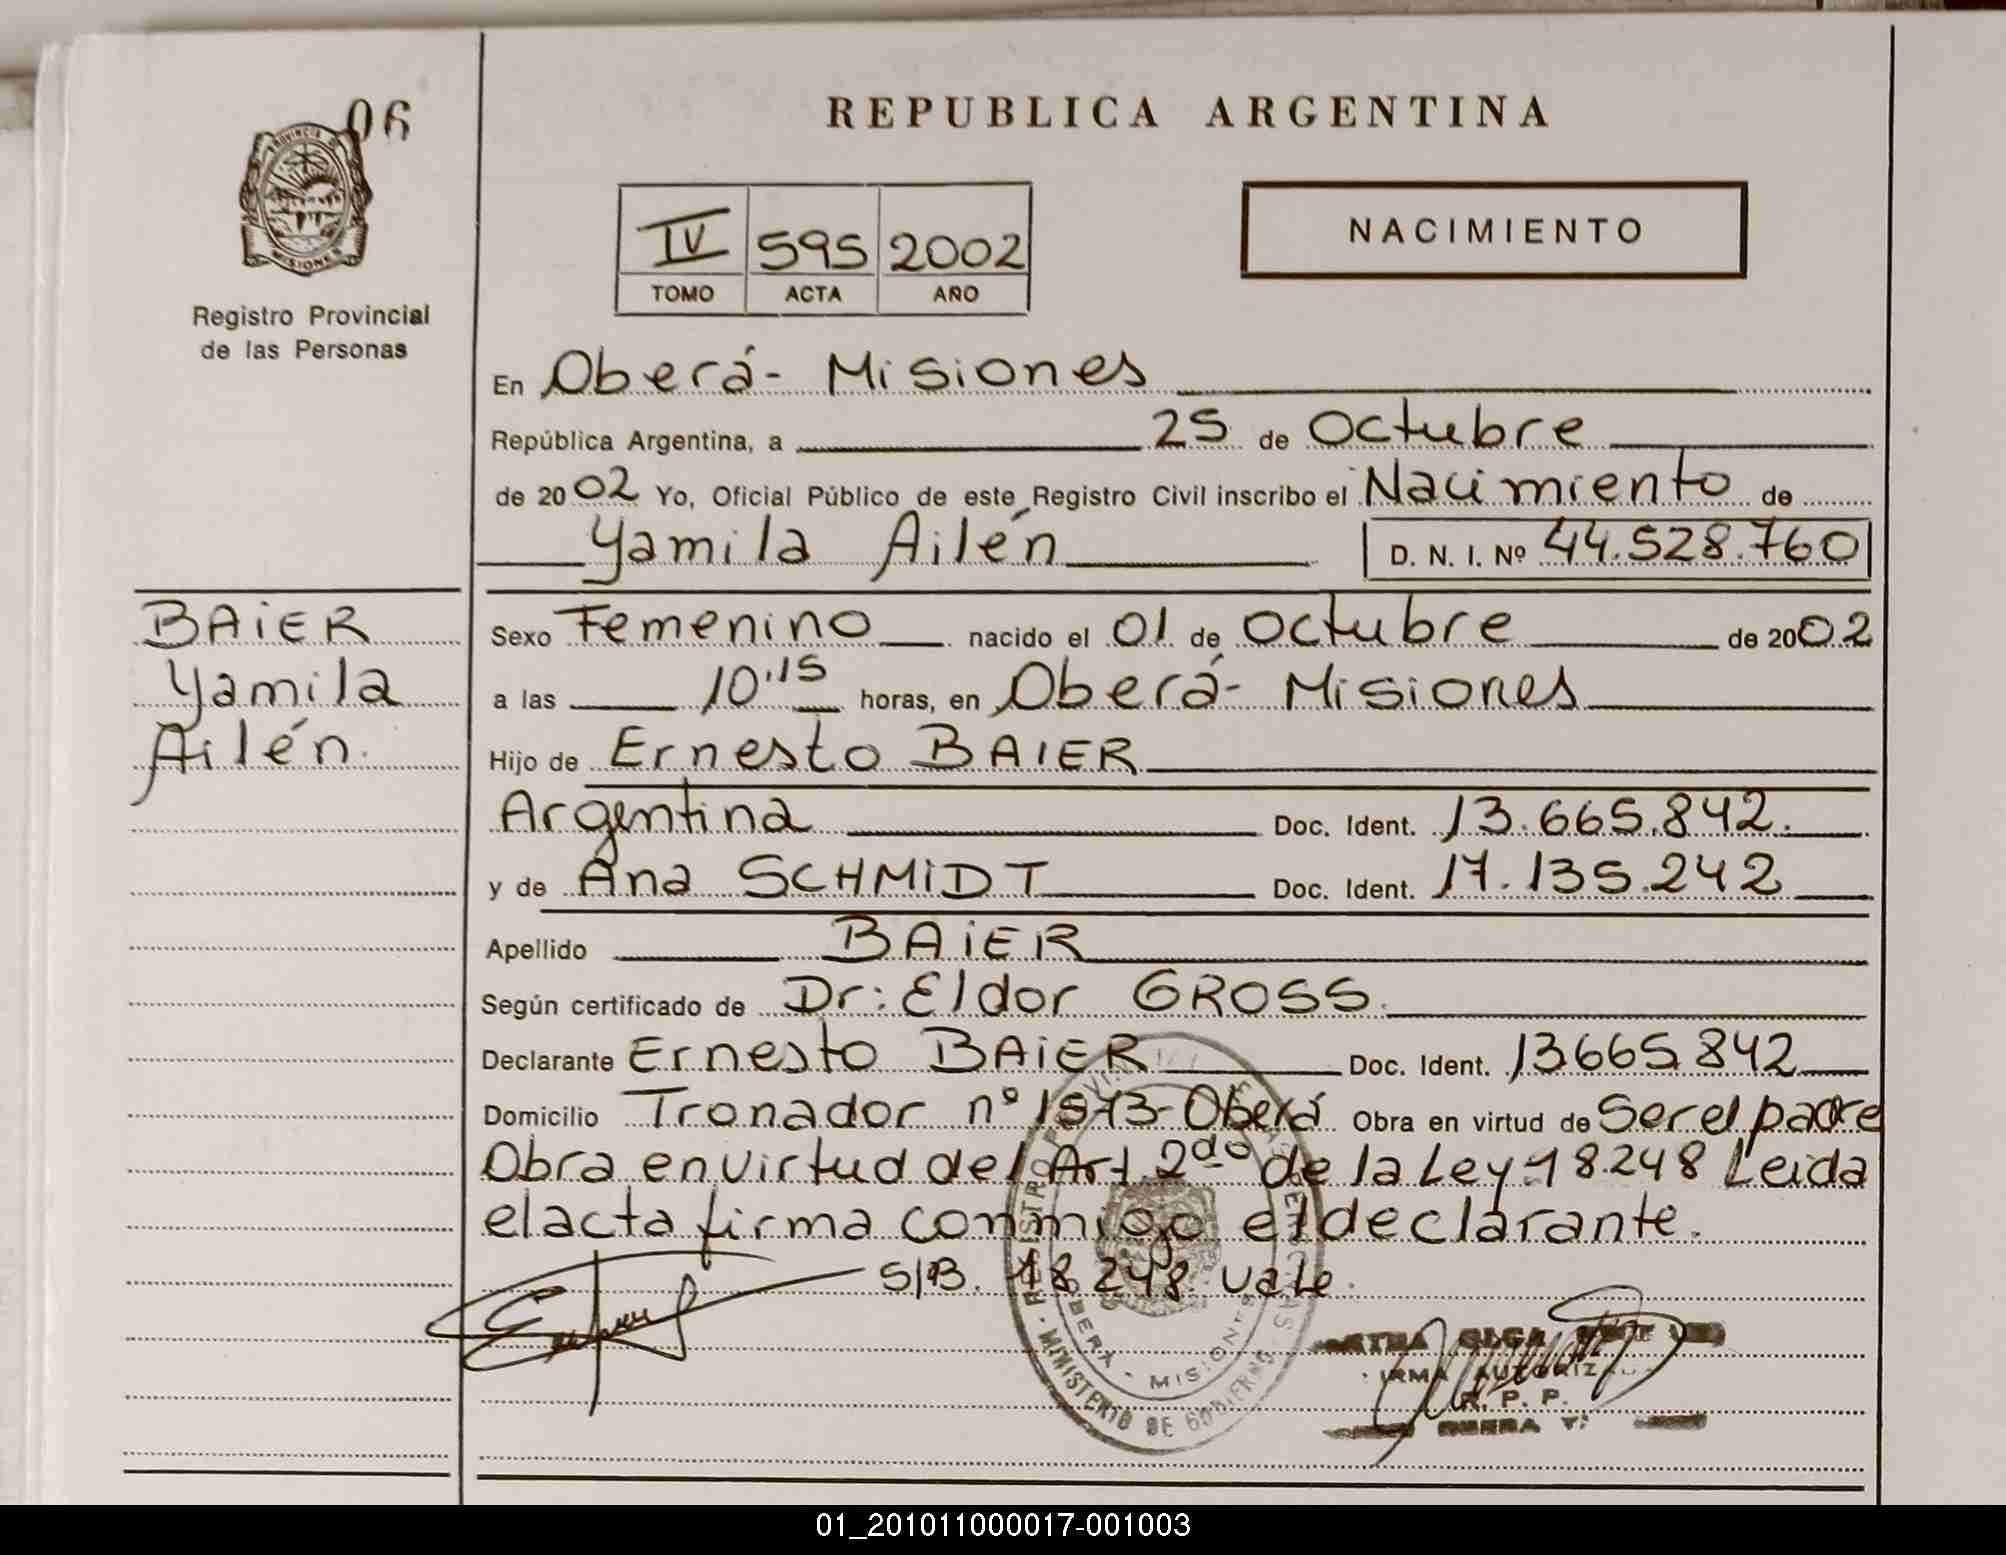 06
PROVINCIA DE
MISIONES
Registro Provincial
de las Personas
BAiER
Yamila
Ailén.
REPUBLICA ARGENTINA
IV 595 2002
TOMO ACTA AÑO
NACIMIENTO
En Oberá- Misiones
República Argentina, a 25 de Octubre
de 2002 Yo, Oficial Público de este Registro Civil inscribo el Nacimiento de
Yamila Ailén D. N. I. Nº 44.528.760
Sexo Femenino nacido el 01 de Octubre de 2002
a las 10'15 horas, en Oberá- Misiones
Hijo de Ernesto BAIER
Argentina Doc. Ident. 13.665.842.
y de Ana SCHMiDT Doc. Ident. 17.135.242
Apellido BAiER
Según certificado de Dr: Eldor GROSS.
Declarante Ernesto BAiER Doc. Ident. 13665.842
Domicilio Tronador nº Oberá Obra en virtud de Ser el padre
Obra en virtud del Art. 2do de la Ley 18.248 Leida
el acta firma conmigo el declarante.
S/B. 18.248. Vale.
MINISTERIO DE GOBIERNO
OBERA - MISIONES
OLGA
FIRMA AUTORIZ
R. P. P.
OBERA
01_201011000017-001003